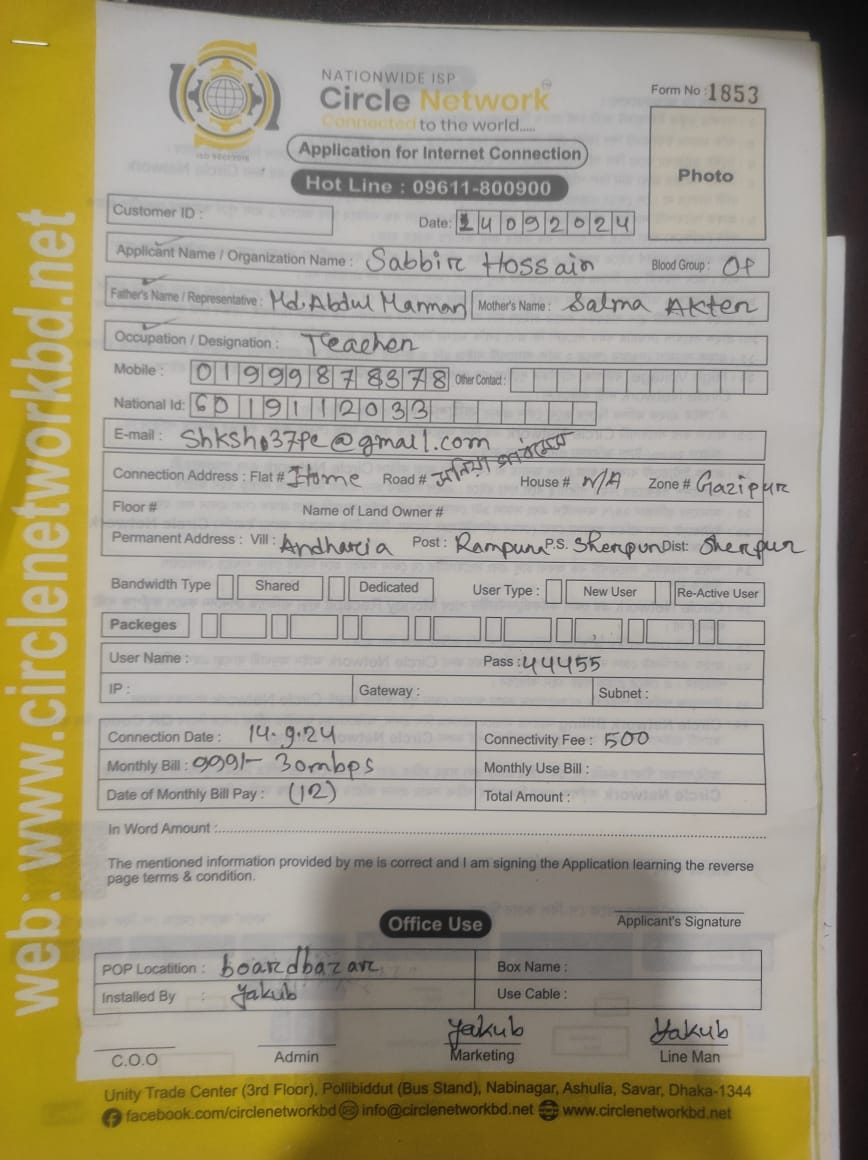 NATIONWIDE ISP
Circle Network
Connected to the world.....
ISO 9001:2015
Form No : 1853
Application for Internet Connection
Photo
Hot Line : 09611-800900
Customer ID :
Date: 14092024
Applicant Name / Organization Name : Sabbir Hossain Blood Group : O+
Father's Name / Representative : Md. Abdul Mannan Mother's Name : Salma Akter
Occupation / Designation : Teacher
Mobile : 01999878378 Other Contact :
National Id: 6019112033
E-mail : @gmail.com
Connection Address : Flat # Home Road # House # N/A Zone # Gazipur
Floor # Name of Land Owner #
Permanent Address : Vill : Andharia Post : Rampura P.S. Sherpur Dist: Sherpur
Bandwidth Type Shared Dedicated User Type : New User Re-Active User
Packeges
User Name : Pass : 44455
IP : Gateway : Subnet :
Connection Date : 14.9.24 Connectivity Fee : 500
Monthly Bill : 999/- 30mbps Monthly Use Bill :
Date of Monthly Bill Pay : (12) Total Amount :
In Word Amount :
The mentioned information provided by me is correct and I am signing the Application learning the reverse
page terms & condition.
Applicant's Signature
Office Use
POP Locatition : boardbazar Box Name :
Installed By : Yakub Use Cable :
Yakub Yakub
C.O.O Admin Marketing Line Man
Unity Trade Center (3rd Floor), Pollibiddut (Bus Stand), Nabinagar, Ashulia, Savar, Dhaka-1344
facebook.com/circlenetworkbd info@circlenetworkbd.net www.circlenetworkbd.net
web: www.circlenetworkbd.net